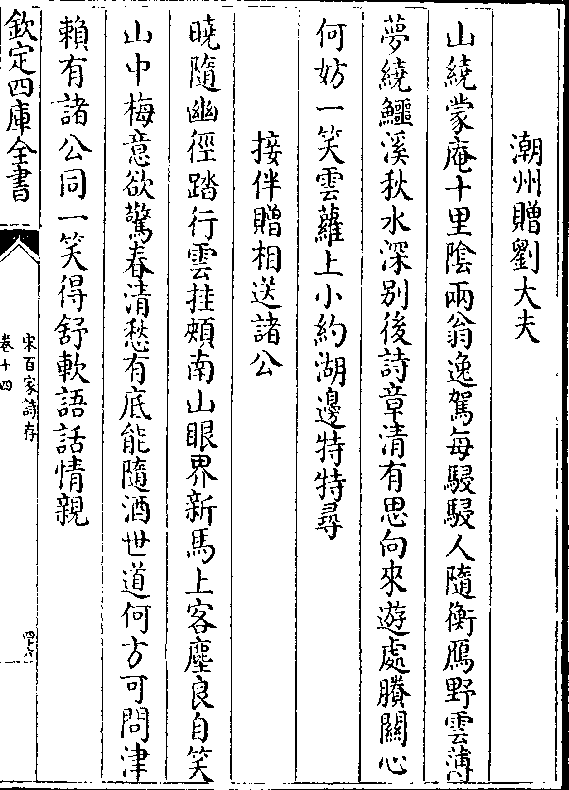 潮州贈劉大夫
山繞蒙庵十里陰兩翁逸駕每駸駸人隨衡鴈野雲薄
夢繞鱷溪秋水深別後詩章清有思向來遊處賸關心
何妨一笑雲蘿上小約湖邊特特尋
接伴贈相送諸公
曉隨幽徑踏行雲挂頰南山眼界新馬上客塵良自笑
山中梅意欲驚春清愁有底能隨酒世道何方可問津
賴有諸公同一笑得舒軟語話情親
欽定四庫全書
宋百家詩存
卷十四